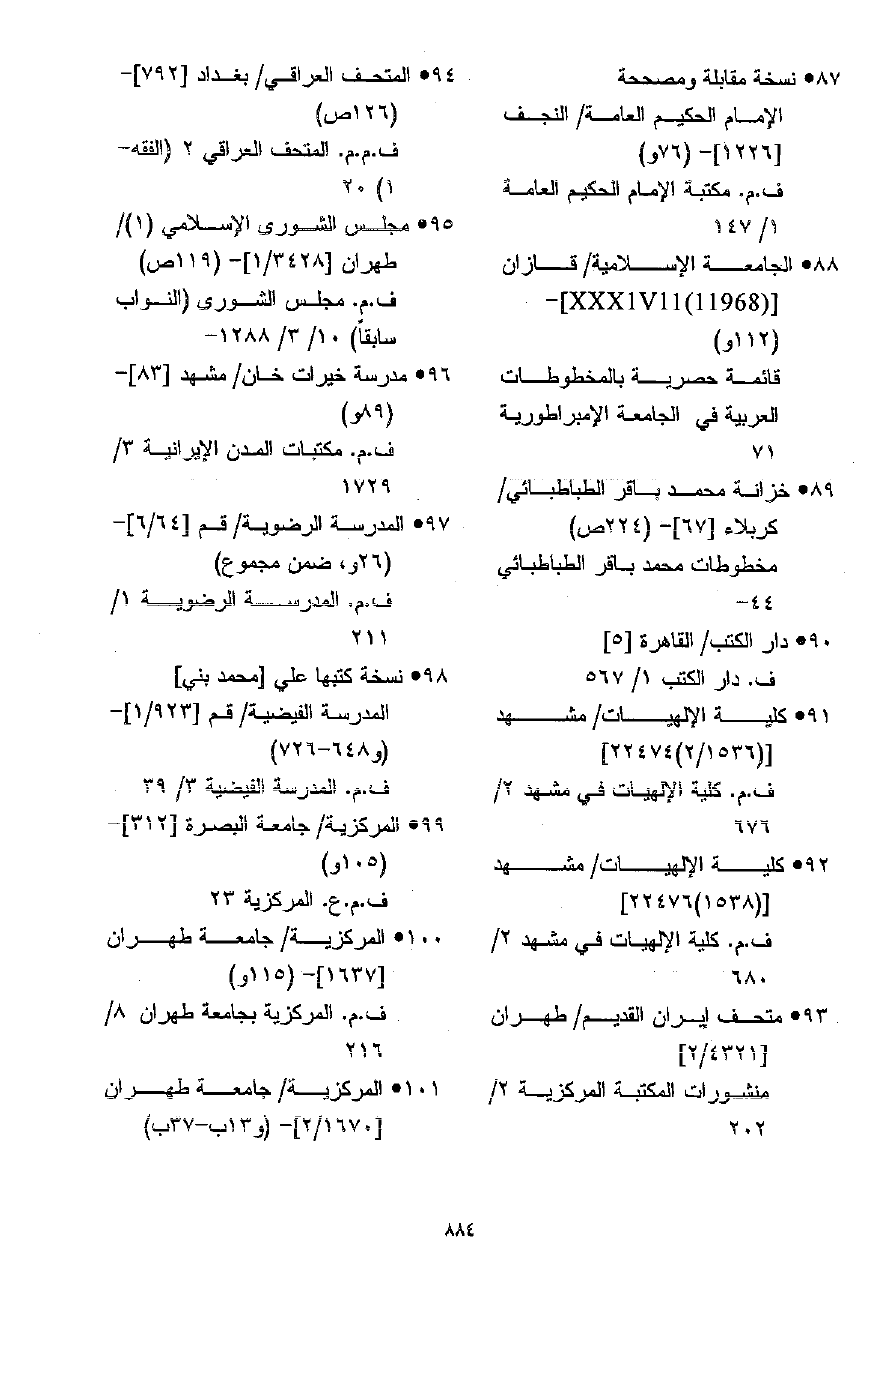 ٨٧• نسخة مقابلة ومصححة
الإمام الحكيم العامة/ النجف
[١٢٢٦]- (٧٦و)
ف.م. مكتبة الإمام الحكيم العامة
١/ ١٤٧
٨٨• الجامعة الإسلامية/ قازان
[XXX1V11(11968)]-
(١١٢و)
قائمة حصرية بالمخطوطات
العربية في الجامعة الإمبراطورية
٧١
٨٩• خزانة محمد باقر الطباطبائي/
كربلاء [٦٧]- (٢٢٤ص)
مخطوطات محمد باقر الطباطبائي
٤٤-
٩٠• دار الكتب/ القاهرة [٥]
ف. دار الكتب ١/ ٥٦٧
٩١• كلية الإلهيات/ مشهد
[(٢/١٥٣٦)٢٢٤٧٤]
ف.م. كلية الإلهيات في مشهد ٢/
٦٧٦
٩٢• كلية الإلهيات/ مشهد
[(١٥٣٨)٢٢٤٧٦]
ف.م. كلية الإلهيات في مشهد ٢/
٦٨٠
٩٣• متحف إيران القديم/ طهران
[٢/٤٣٢١]
منشورات المكتبة المركزية ٢/
٢٠٢
٩٤• المتحف العراقي/ بغداد [٧٩٢]-
(١٢٦ص)
ف.م.م. المتحف العراقي ٢ (الفقه-
١) ٢٠
٩٥• مجلس الشورى الإسلامي (١)/
طهران [١/٣٤٢٨]- (١١٩ص)
ف.م. مجلس الشورى (النواب
سابقاً) ١٠/ ٣/ ١٢٨٨-
٩٦• مدرسة خيرات خان/ مشهد [٨٣]-
(٨٩و)
ف.م. مكتبات المدن الإيرانية ٣/
١٧٢٩
٩٧• المدرسة الرضوية/ قم [٦/٦٤]-
(٢٦و، ضمن مجموع)
ف.م. المدرسة الرضوية ١/
٢١١
٩٨• نسخة كتبها علي [محمد بني]
المدرسة الفيضية/ قم [١/٩٢٣]-
(و٦٤٨-٧٢٦)
ف.م. المدرسة الفيضية ٣/ ٣٩
٩٩• المركزية/ جامعة البصرة [٣١٢]-
(١٠٥و)
ف.م.ع. المركزية ٢٣
١٠٠• المركزية/ جامعة طهران
[١٦٣٧]- (١١٥و)
ف.م. المركزية بجامعة طهران ٨/
٢١٦
١٠١• المركزية/ جامعة طهران
[٢/١٦٧٠]- (و١٣ب-٣٧ب)
٨٨٤